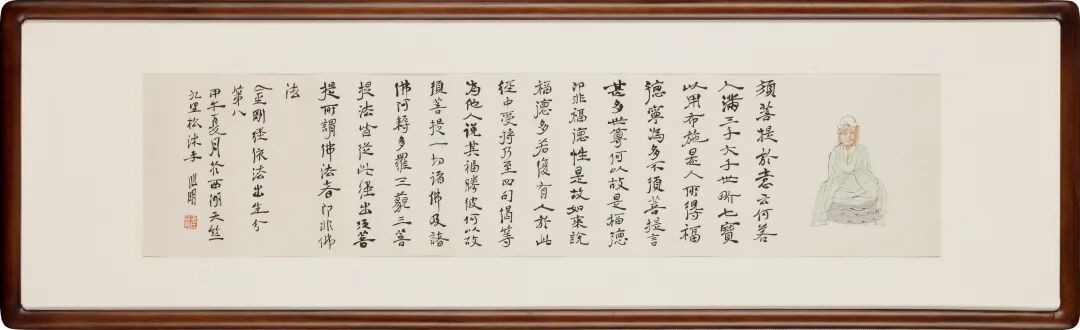 須菩提於意云何若
人滿三千大千世界七寶
以用布施是人所得福
德寧為多不須菩提言
甚多世尊何以故是福德
即非福德性是故如來說
福德多若復有人於此
經中受持乃至四句偈等
為他人說其福勝彼何以故
須菩提一切諸佛及諸
佛阿耨多羅三藐三菩
提法皆從此經出須菩
提所謂佛法者即非佛
法
金剛經依法出生分
第八
甲午夏月於西湖天竺
九里松沐手 明